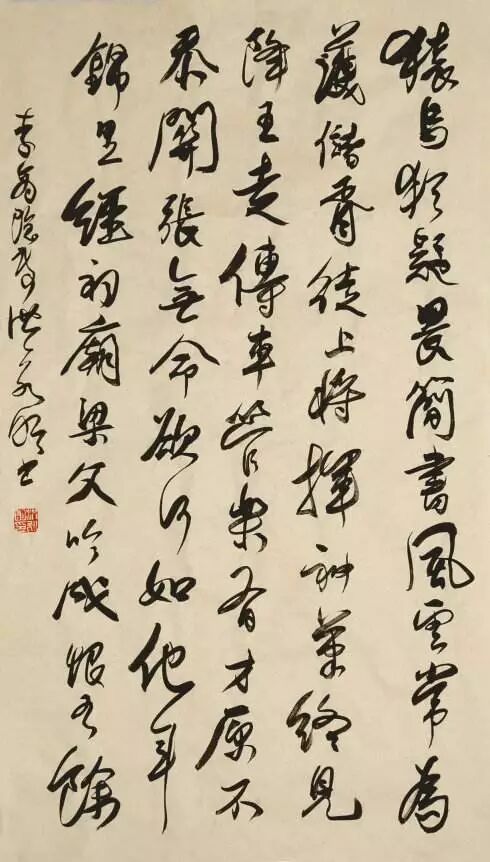 猿鳥猶疑畏簡書風雲常為
護儲胥徒上將揮神筆終見
降王走傳車管樂有才原不
忝關張無命欲何如他年
錦里經祠廟梁父吟成恨有餘
李商隐詩洪書